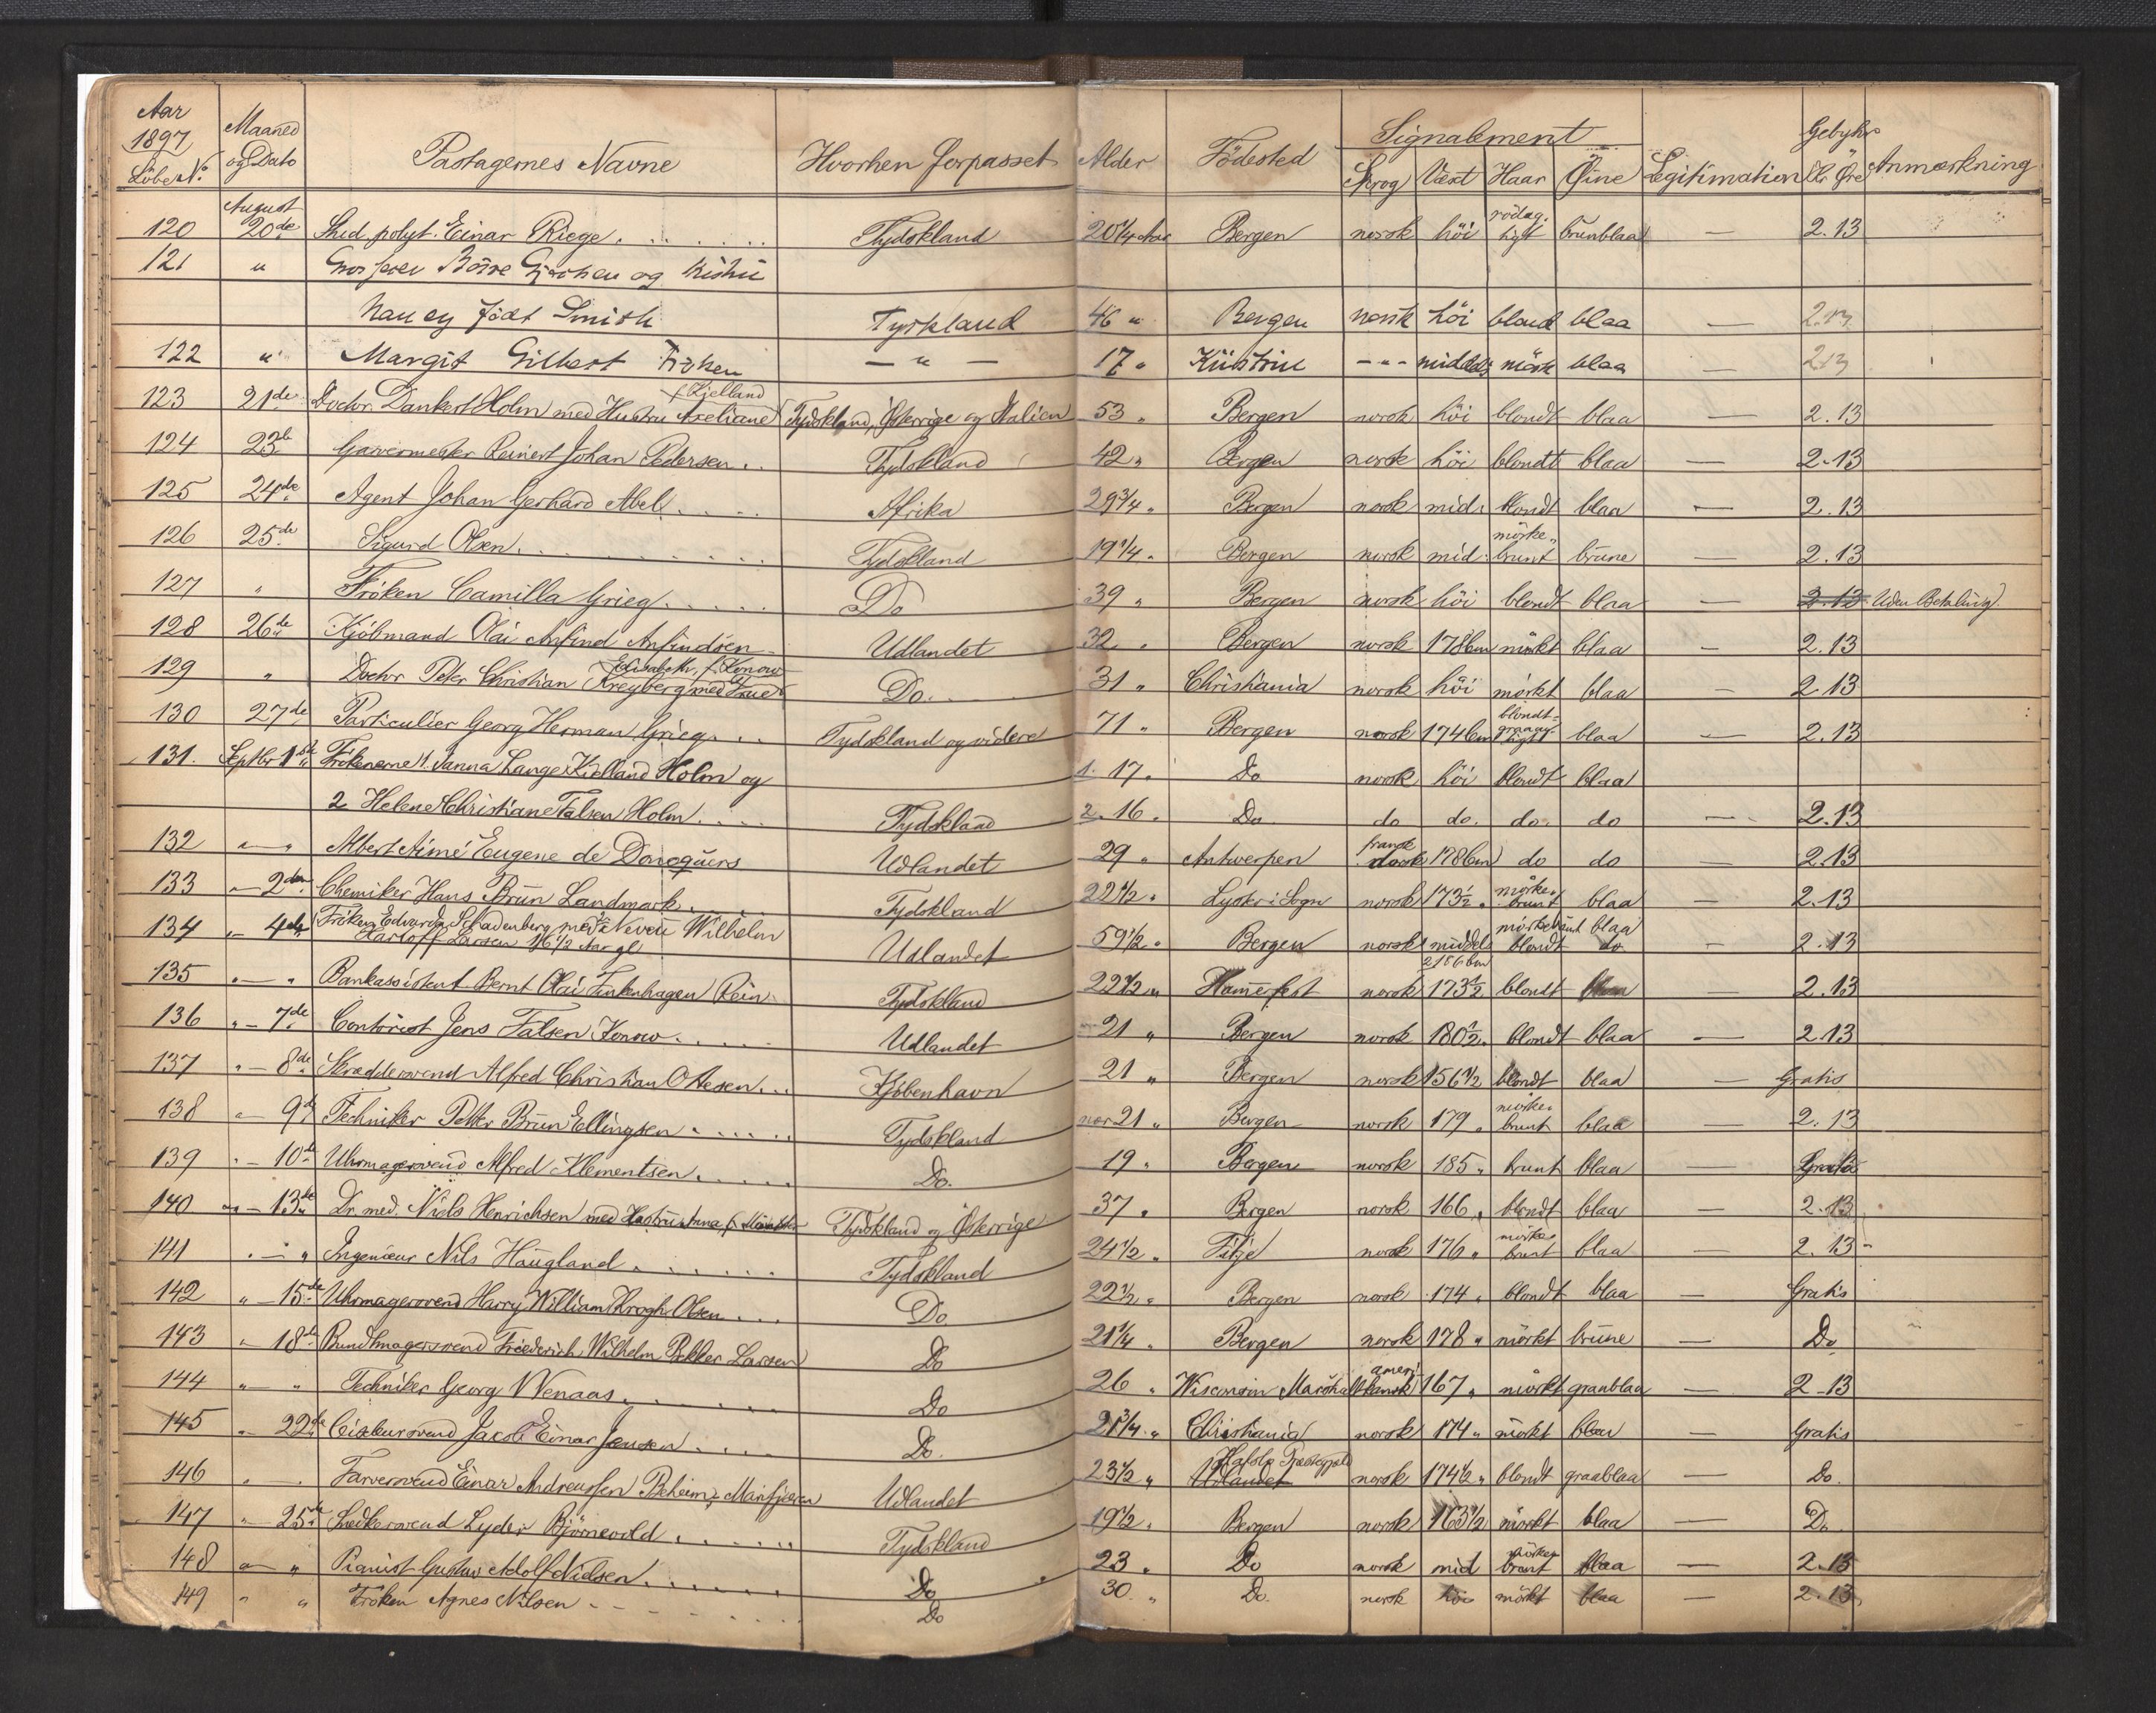 Aar 1897 Löbe No. Maaned og Dato Passagernes Navne Hvorhen forpasset Alder Födested Signalement Sprog Växt Haar Öine Legitimation Gebyhr Kr Øre Anmærkning
August
120 20de Stud. polyt. Einar Riege Tydskland 20 1/4 Aar Bergen norsk höi rödag. ligt brunblaa — 2.13
121 " Grosserer Börre Giertsen og Hustru
Nancy født Smith Tyskland 46 " Bergen norsk höi blond blaa — 2.13
122 " Margit Gilbert Frøken — " — 17 " Küstrin — " — middels mörk blaa — 2.13
123 21de Doctor Dankert Holm med Hustru Axeliane f. Kjelland Tydskland, Österrige og Italien 53 " Bergen norsk höi blondt blaa — 2.13
124 23de Garvermester Reinert Johan Pedersen Tydskland 42 " Bergen norsk höi blondt blaa — 2.13
125 24de Agent Johan Gerhard Abel Afrika 29 3/4 " Bergen norsk mid. blondt blaa — 2.13
126 25de Sigurd Olsen Tydskland 19 1/4 " Bergen norsk mid. mörke brunt brune — 2.13
127 " Fröken Camilla Grieg Do 39 " Bergen norsk höi blondt blaa — 2.13 Uden Betaling
128 26de Kjöbmand Olai Anfind Anfindsen Udlandet 32 " Bergen norsk 178 Cm mörkt blaa — 2.13
129 " Doctor Peter Christian Kreyberg med Frue Elisabeth, f. Konow Do. 31 " Christiania norsk höi mörkt blaa — 2.13
130 27de Particulier Georg Herman Grieg Tydskland og videre 71 " Bergen norsk 174 Cm blondt graaagtigt blaa — 2.13
131. Septbr 1ste Frökenerne 1. Janna Lange Kielland Holm og 1. 17 " Do norsk höi blondt blaa
2 Helene Christiane Falsen Holm Tydskland 2. 16 " Do do do. do. do — 2.13
132 " — " Albert Aimé Eugene de Doncquers Udlandet 29 " Antwerpen fransk norsk 178 Cm do do — 2.13
133 " — 2den Chemiker Hans Brun Landmark Tydskland 22 1/2 " Lyster i Sogn norsk 173 1/2 " mörke brunt blaa — 2.13
134 " — 4de Fröken Edvarda Schadenberg med Neveu Wilhelm
Harloff Larsen 16 1/2 Aar gl Udlandet 59 1/2 " Bergen norsk middels 2 156 Cm mörkebrunt blondt blaa do — 2.13
135 " — " Bankassistent Bernt Olai Finkenhagen Rein Tydskland 22 1/2 " Hammerfest norsk 173 1/2 blondt blaa — 2.13
136 " — 7de Contorist Jens Falsen Konow Udlandet 21 " Bergen norsk 180 1/2 " blondt blaa — 2.13
137 " — 8de Skreddersvend Alfred Christian Ottesen Kjöbenhavn 21 " Bergen norsk 156 1/2 blondt blaa — Gratis
138 " — 9de Techniker Peter Brun Ellingsen Tydskland nær 21 " Bergen norsk 179 " mörke brunt blaa — 2.13
139 " — 10de Uhrmagersvend Alfred Klementsen Do. 19 " Bergen norsk 185 " brunt blaa — Gratis
140 " — 13de Dr. med. Niels Henrichsen med Hustru Anna f. Tydskland og Österrige 37 " Bergen norsk 166 " blondt blaa — 2.13
141 " — " Ingeniør Nils Haugland Tydskland 24 1/2 " Fitje norsk 176 " mörke brunt blaa — 2.13
142 " — 15de Uhrmagersvend Harry William Krogh Olsen Do. 22 1/2 " Bergen norsk 174 " blondt blaa — Gratis
143 " — 18de Bundtmagersvend Friederich Wilhelm Bekker Larsen Do 21 1/4 " Bergen norsk 178 " mörkt brune — Do
144 " — " Techniker Georg Wenaas Do 26 " Wisconsin Marshall amerikansk 167 " mörkt graablaa — 2.13
145 " — 22de Ciseleursvend Jacob Einar Jensen Do. 21 3/4 " Christiania norsk 174 " mörkt blaa — Gratis
146 " — " Farversvend Einar Andreassen Beheim, Marifjæren Udlandet 23 1/2 " Udlandet Hafslo Præstegjæld norsk 174 1/2 " blondt graablaa — Do.
147 " — 25de Snedkersvend Lyder Björnevold Tydskland 19 1/2 " Bergen norsk 163 1/2 mörkt blaa — Do
148 " — " Pianist Gustav Adolf Nielsen Do 23 " Do norsk mid mörke brunt blaa — 2.13
149 " " Fröken Agnes Nilsen Do 30 " Do. norsk höi mörkt blaa — 2.13